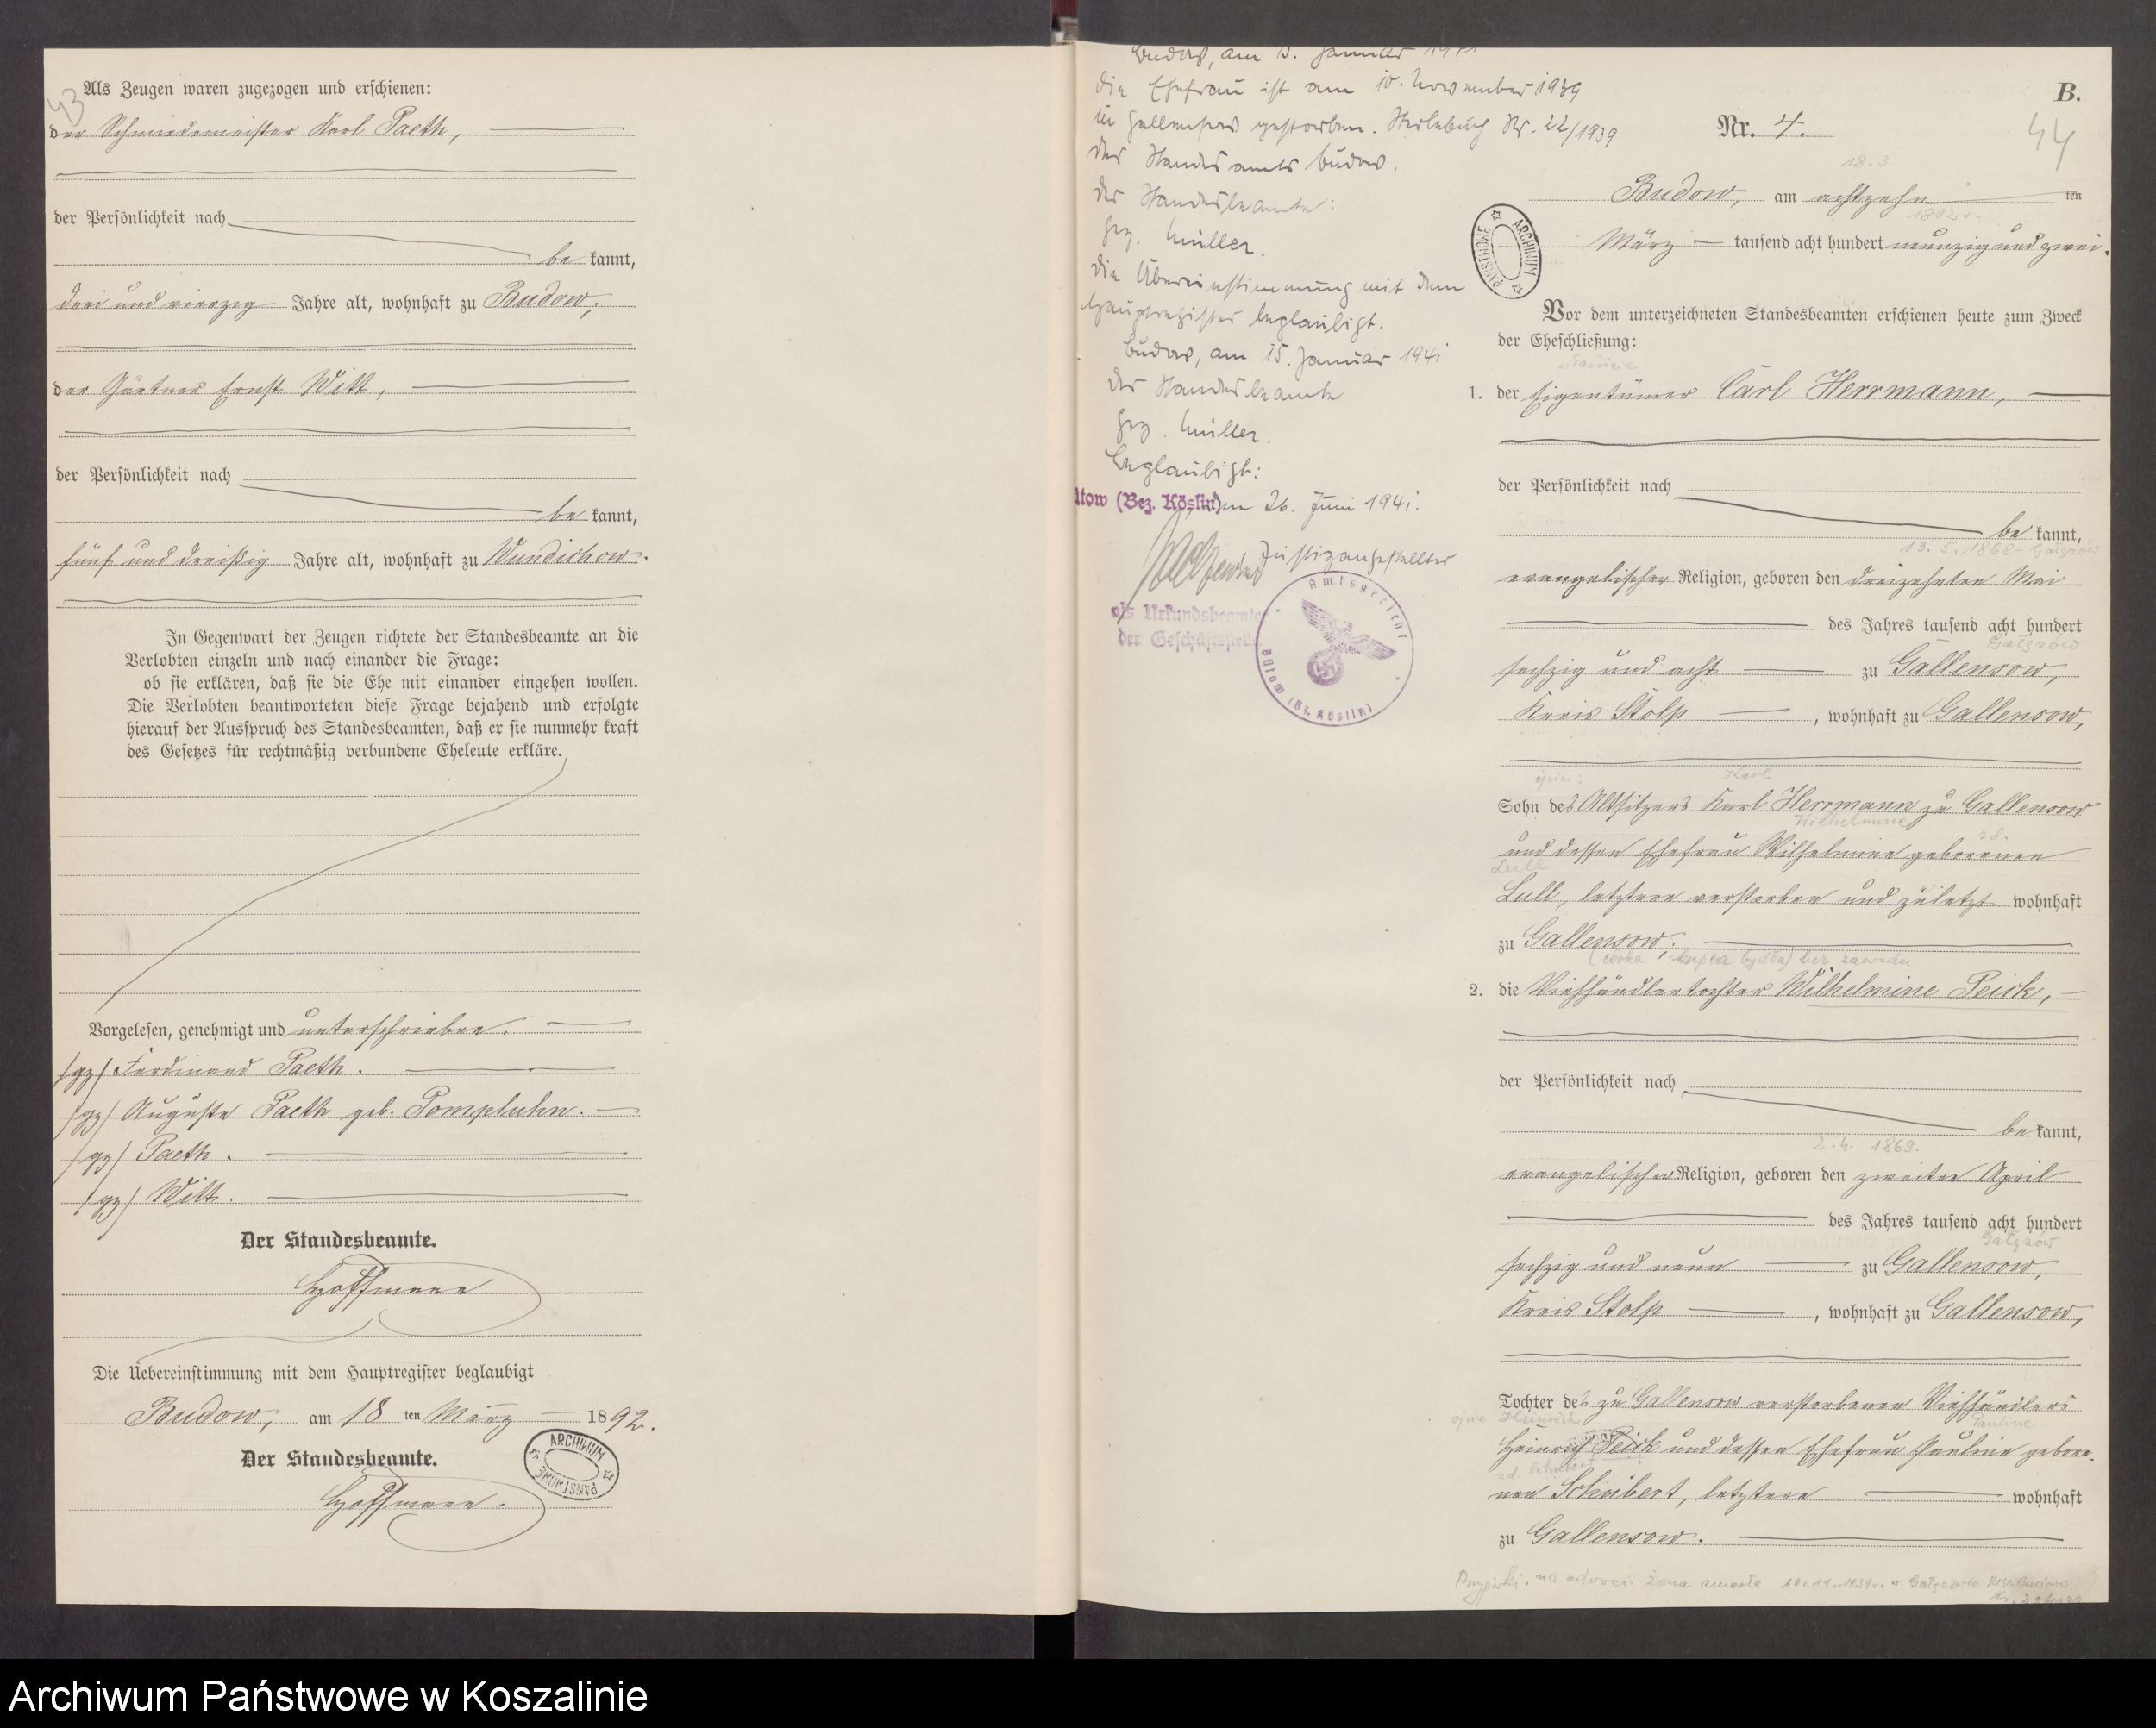 43
Als Zeugen waren zugezogen und erschienen:
der Schmiedemeister Karl Paeth,
der Persönlichkeit nach
be kannt,
drei und vierzig Jahre alt, wohnhaft zu Budow;
der Gärtner Ernst Witt,
der Persönlichkeit nach
be kannt,
fünf und dreißig Jahre alt, wohnhaft zu Wundichow.
In Gegenwart der Zeugen richtete der Standesbeamte an die
Verlobten einzeln und nach einander die Frage:
ob sie erklären, daß sie die Ehe mit einander eingehen wollen.
Die Verlobten beantworteten diese Frage bejahend und erfolgte
hierauf der Ausspruch des Standesbeamten, daß er sie nunmehr kraft
des Gesetzes für rechtmäßig verbundene Eheleute erkläre.
Vorgelesen, genehmigt und unterschrieben.
/gz/ Ferdinand Paeth.
/gz/ Auguste Paeth geb. Pompluhn.
/gz/ Paeth.
/gz/ Witt.
Der Standesbeamte.
Hoffmann
Die Uebereinstimmung mit dem Hauptregister beglaubigt
Budow, am 18 ten März 1892.
Der Standesbeamte.
Hoffmann.
ARCHIWUM PAŃSTWOWE
Budow, am 15. Januar 1941
Die Ehefrau ist am 10. November 1939
in Gallensow gestorben. Sterbebuch Nr. 22/1939
des Standesamts Budow.
Der Standesbeamte:
gez. Müller.
Die Übereinstimmung mit dem
Hauptregister beglaubigt.
Budow, am 15. Januar 1941
Der Standesbeamte
gez. Müller.
Beglaubigt:
ütow (Bez. Köslin) den 26. Juni 1941.
Justizangestellter
als Urkundsbeamter
der Geschäftsstelle
Amtsgericht
Bütow (Bz. Köslin)
B.
Nr. 4.
44
18.3
Budow, am achtzehn ten
1892 r.
März tausend acht hundert neunzig und zwei.
ARCHIWUM PAŃSTWOWE
Vor dem unterzeichneten Standesbeamten erschienen heute zum Zweck
der Eheschließung:
1. der Eigentümer Carl Herrmann,
der Persönlichkeit nach
be kannt,
13. 5. 1868 - Gałęzów
evangelischer Religion, geboren den dreizehnten Mai
des Jahres tausend acht hundert
Gałęzów
sechzig und acht zu Gallensow,
Kreis Stolp, wohnhaft zu Gallensow,
ojciec: Karl
Sohn des Altsitzers Karl Herrmann zu Gallensow
Wilhelmine zd.
und dessen Ehefrau Wilhelmine geborenen
Lull
Lull, letztere verstorben und zuletzt wohnhaft
zu Gallensow;
(córka kupca bydła) bez zawodu
2. die Viehhändlertochter Wilhelmine Peick,
der Persönlichkeit nach
be kannt,
2. 4. 1869.
evangelischer Religion, geboren den zweiten April
des Jahres tausend acht hundert
Gałęzów
sechzig und neun zu Gallensow,
Kreis Stolp, wohnhaft zu Gallensow,
Tochter des zu Gallensow verstorbenen Viehhändlers
ojciec Heinrich Pauline
Heinrich Peick und dessen Ehefrau Pauline gebore-
zd. Schubert
nen Schribert, letztere wohnhaft
zu Gallensow.
Przypiski: na adwoci żona zmarła 10.11.1939r. w Gałęzowie
Archiwum Państwowe w Koszalinie